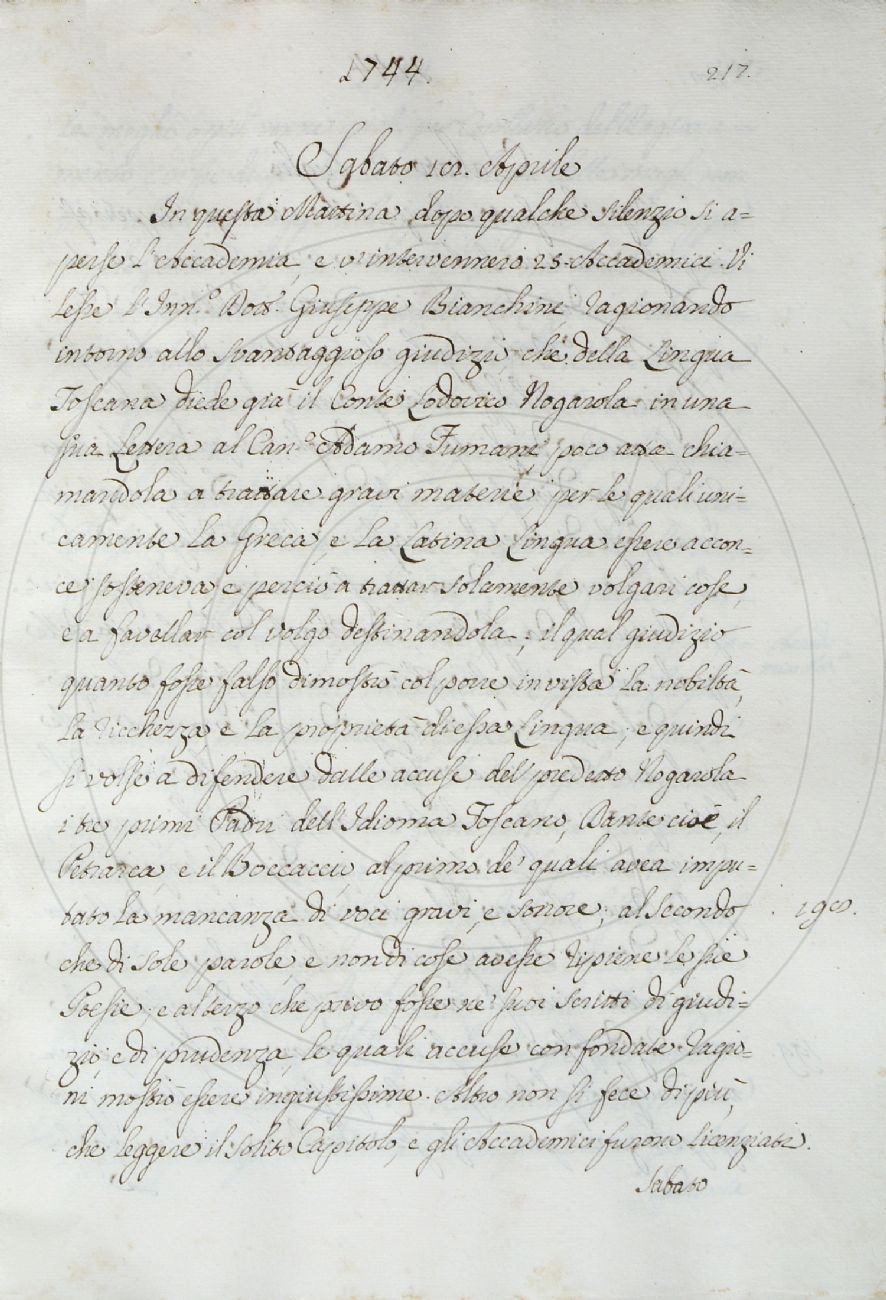 1744.
217.
Sabato 18. Aprile
In questa Mattina dopo qualche silenzio si a=
perse l'Accademia, e v'intervennero 25. Accademici. Vi
lesse l'Inn.° Dott.r Giuseppe Bianchini, ragionando
intorno allo svantaggioso giudizio, che della Lingua
Toscana diede già il Conte Lodovico Nogarola in una
sua Lettera al Can.° Adamo Fumani, poco atta chia=
mandola a trattare gravi materie, per le quali uni=
camente la Greca, e la Latina Lingua essere accon=
ce sosteneva, e perciò a trattar solamente volgari cose,
e a favellar col volgo destinandola; il qual giudizio
quanto fosse falso dimostrò col porre in vista la nobiltà,
la ricchezza, e la proprietà di essa Lingua; e quindi
si volse a difendere dalle accuse del predetto Nogarola
i tre primi Padri dell'Idioma Toscano, Dante cioè, il
Petrarca, e il Boccaccio, al primo de' quali avea impu=
tato la mancanza di voci gravi, e sonore; al secondo
che di sole parole, e non di cose avesse ripiene le sue
Poesie; e al terzo che privo fosse ne' suoi scritti di giudi=
zio, e di prudenza, le quali accuse con fondate ragio=
ni mostrò essere ingiustissime. Altro non si fece di più,
che leggere il solito Capitolo, e gli Accademici furono licenziati.
Sabato